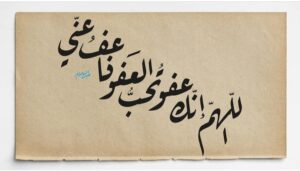 اللّهمّ إنّك عفوّ تحبُّ العفو فاعفُ عنّي